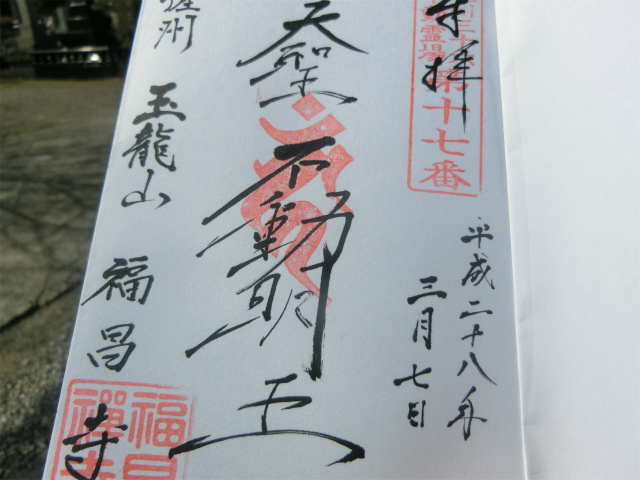 奉拝
霊場第十七番
平成二十八年
三月七日
天聖
不動明王
薩州 玉龍山 福昌寺
福昌
禅寺